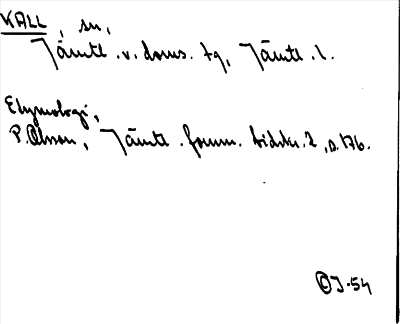 KALL, sn,
Jämtl. v. doms. tg, Jämtl. l.
Etymologi,
P. Olsson, Jämtl. fornm. tidskr. 2, s. 176.
ÖJ-54